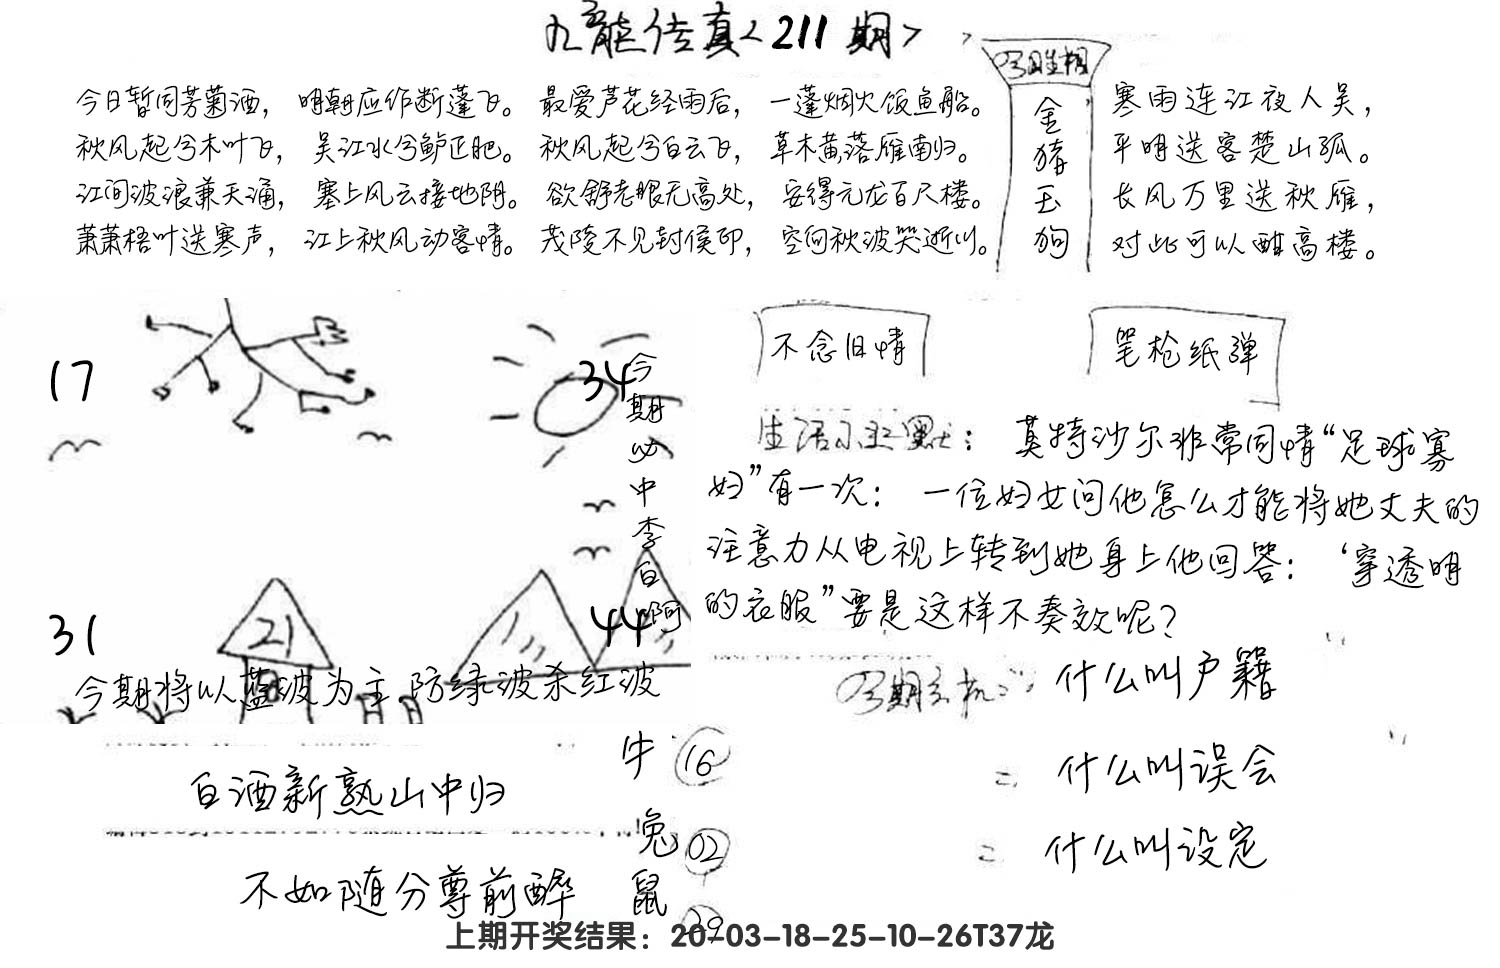 九龙传真<211期>
今日暂同芳菊酒， 明朝应作断蓬飞。 最爱芦花经雨后， 一蓬烟火饭鱼船。
秋风起兮木叶飞， 吴江水兮鲈正肥。 秋风起兮白云飞， 草木黄落雁南归。
江间波浪兼天涌， 塞上风云接地阴。 欲舒老眼无高处， 安得元龙百尺楼。
萧萧梧叶送寒声， 江上秋风动客情。 茂陵不见封侯印， 空向秋波哭逝川。
金
猪
玉
狗
寒雨连江夜入吴，
平明送客楚山孤。
长风万里送秋雁，
对此可以酣高楼。
17
34
31
21
44
今期必中李白阿
今期将以蓝波为主防绿波杀红波
不念旧情
笔枪纸弹
生活小幽默： 莫特沙尔非常同情“足球寡
妇”有一次： 一位妇女问他怎么才能将她丈夫的
注意力从电视上转到她身上他回答： ‘穿透明
的衣服”要是这样不奏效呢？
什么叫户籍
什么叫误会
什么叫设定
白酒新熟山中归
不如随分尊前醉
牛 16
兔 02
鼠 29
上期开奖结果：20-03-18-25-10-26T37龙